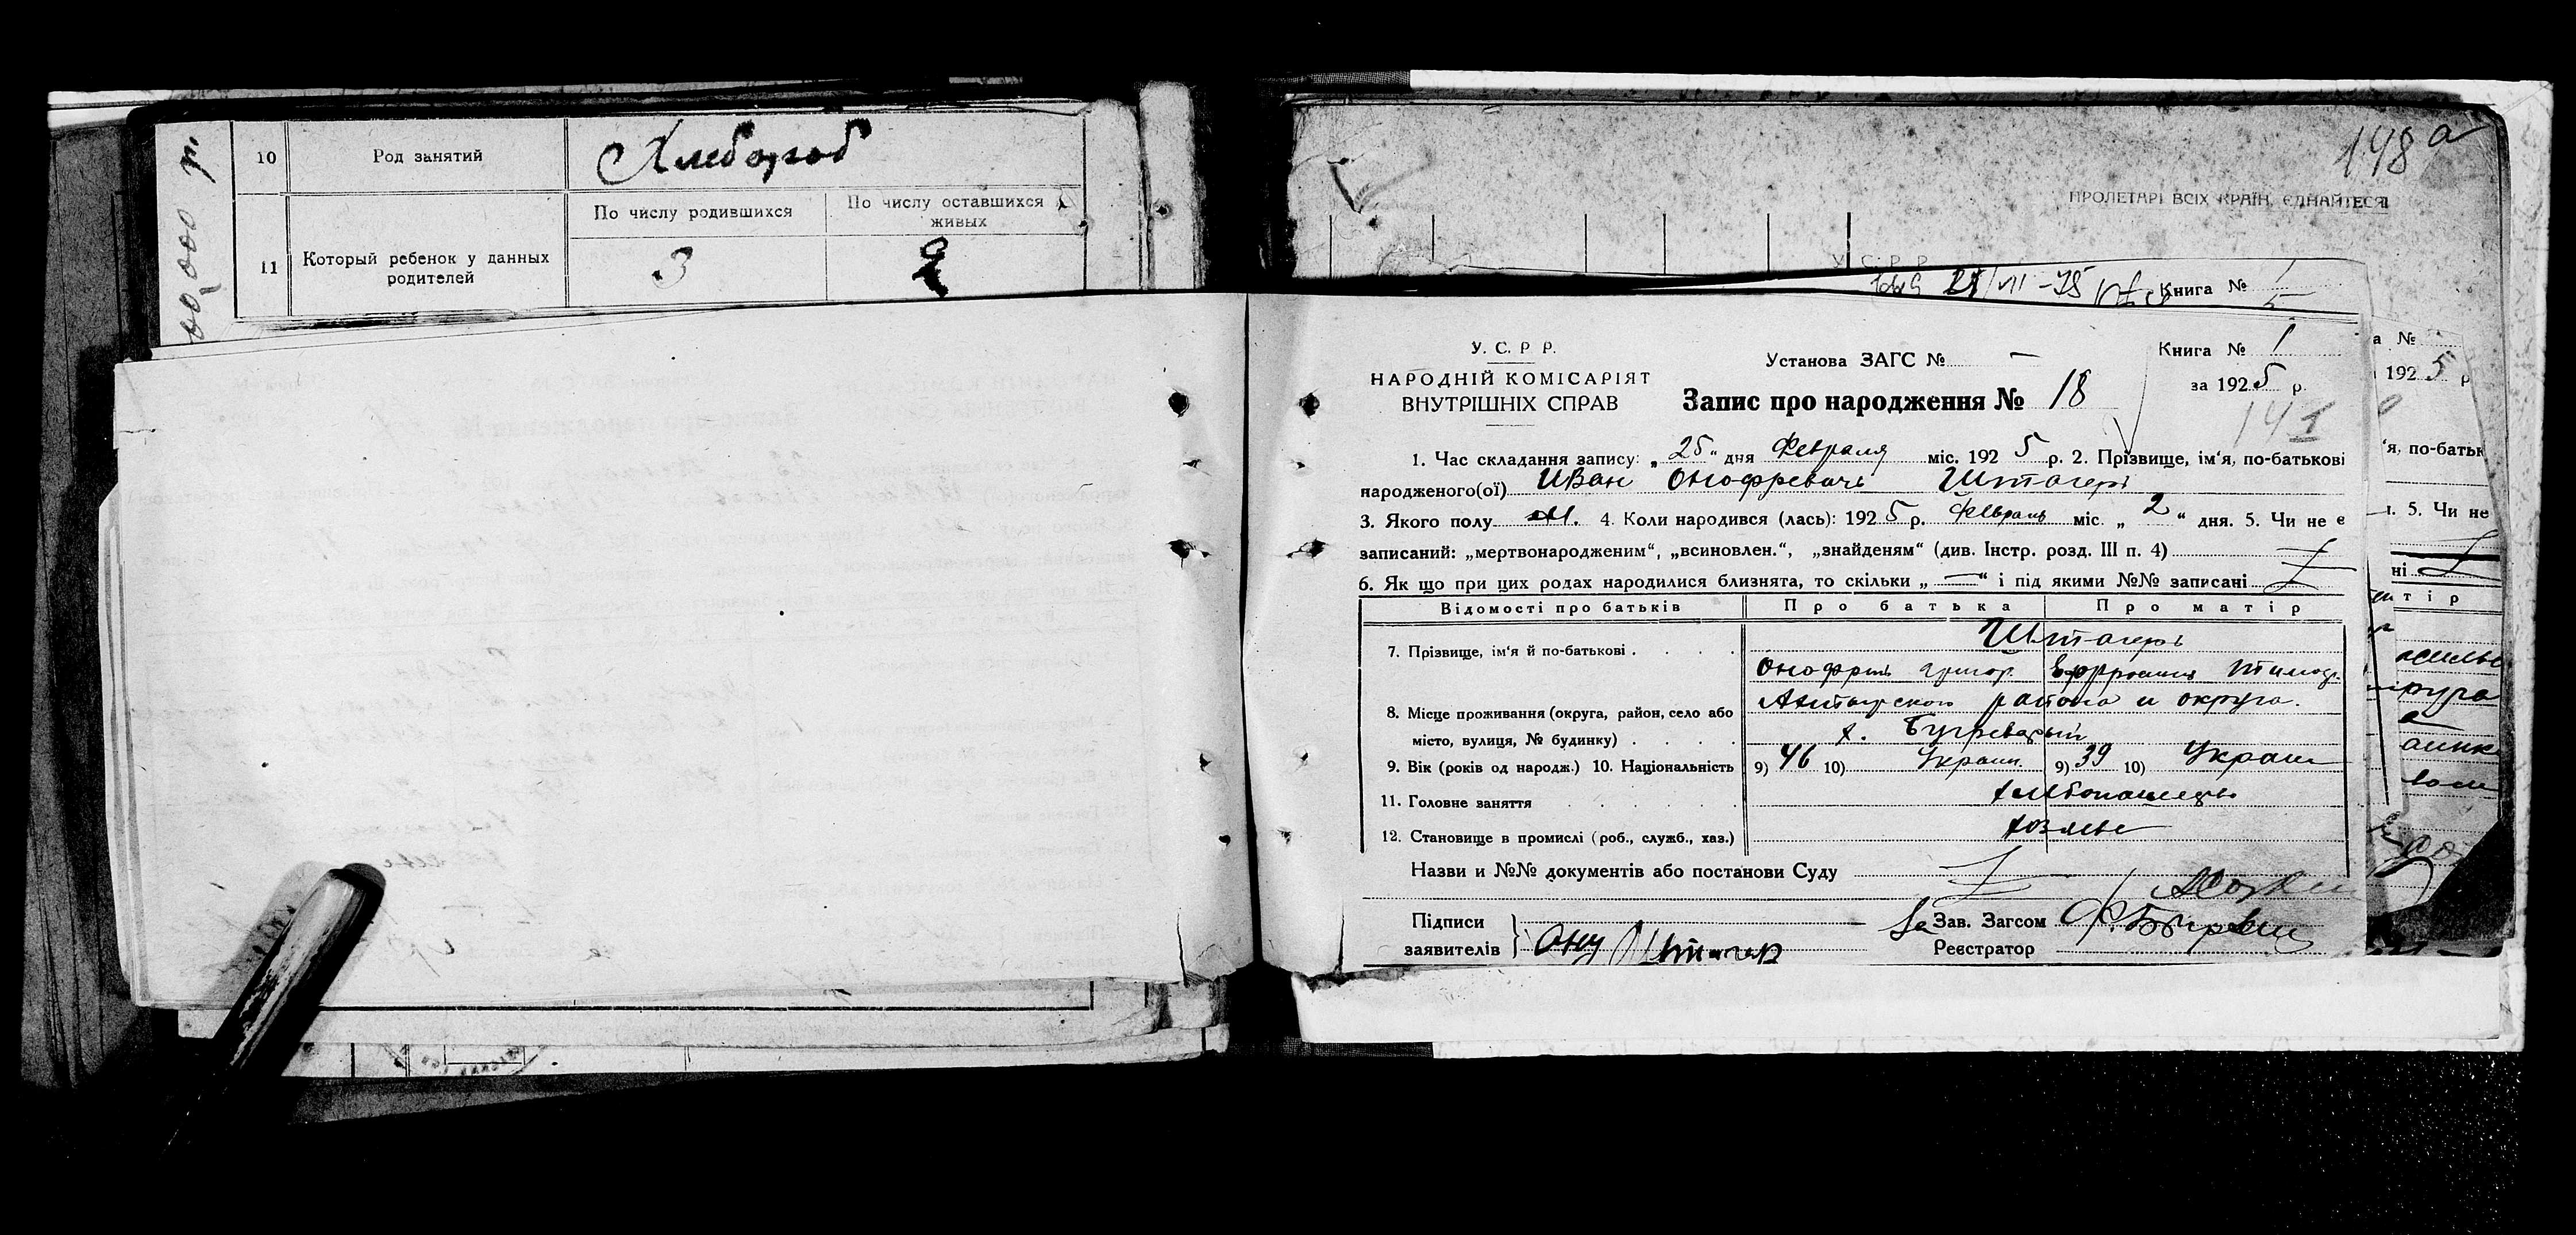 10 Род занятий Хлебороб
11 Который ребенок у данных родителей
По числу родившихся По числу оставшихся живых
3 2
148 а
ПРОЛЕТАРІ ВСІХ КРАЇН, ЄДНАЙТЕСЯ
У. С. Р. Р.
Книга №
У. С. Р. Р.
НАРОДНІЙ КОМІСАРІЯТ
ВНУТРІШНІХ СПРАВ
Установа ЗАГС № —
Запис про народження № 18
Книга № 1
за 1925 р.
1. Час складання запису: „25“ дня Февраля міс. 1925 р. 2. Прізвище, ім‘я, по-батькові
народженого(ої) Иван Онофревичь Штагерь
3. Якого полу м. 4. Коли народився (лась): 1925 р. Февраль міс. „2“ дня. 5. Чи не є
записаний: „мертвонародженим“, „всиновлен.“, „знайденям“ (див. Інстр. розд. III п. 4)
6. Як що при цих родах народилися близнята, то скільки „—“ і під якими №№ записані
Відомості про батьків Про батька Про матір
Штагерь
7. Прізвище, ім‘я й по-батькові
Онофрий Григор. Ефросиния Тимоф.
8. Місце проживання (округа, район, село або Ахтырского района и округа.
місто, вулиця, № будинку) х. Бугреватый
9. Вік (років од народж.) 10. Національність 9) 46 10) Украин. 9) 39 10) Украин
11. Головне заняття хлебопашецъ
12. Становище в промислі (роб., служб., хаз.) хозяева
Назви и №№ документів або постанови Суду
Підписи заявителів Ону Штагер
За Зав. Загсом
Реєстратор
а №
1925 р
‘я, по-батьк
. 5. Чи не
ні
тір